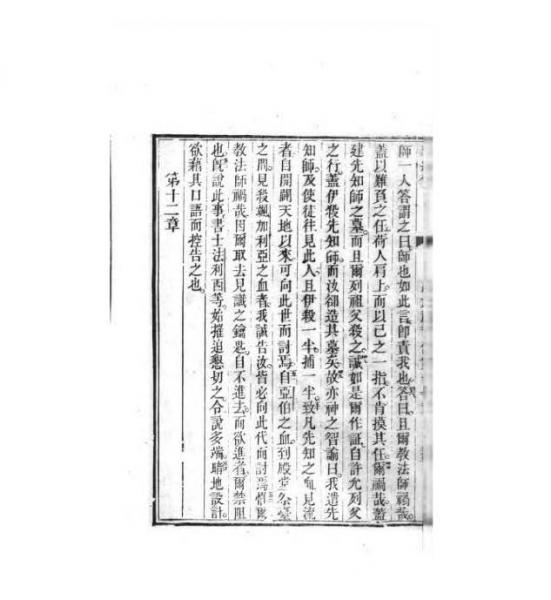 師一人答謂之曰師也如此言卽責我也答曰且爾教法師禍哉
蓋以難負之任荷人肩上而以己之一指不肯摸其任爾禍哉蓋
建先知師之墓而且爾列祖父殺之誠如是爾作証自許允列父
之行蓋伊殺先知師而汝卻造其墓矣故亦神之智諭曰我遣先
知師及使徒往見此人且伊殺一半捕一半致凡先知之血見流
者自開闢天地以來可向此世而討焉自亞伯之血到殿堂祭臺
之間見殺颯加利亞之血者我誠告汝皆必向此代而討焉
教法師禍哉因爾取去見識之鑰匙自不進去而欲進者爾禁阻
也旣說此事書士法利西等始摧迫懇切之令說多端暗地設計
欲藉其口語而控告之也
第十二章